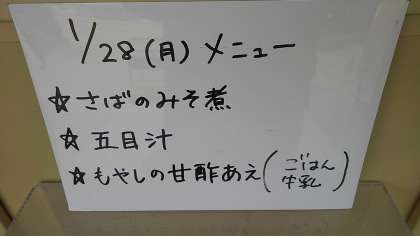 1/28(月)メニュー
☆さばのみそ煮
☆五目汁
☆もやしの甘酢あえ(ごはん
牛乳)